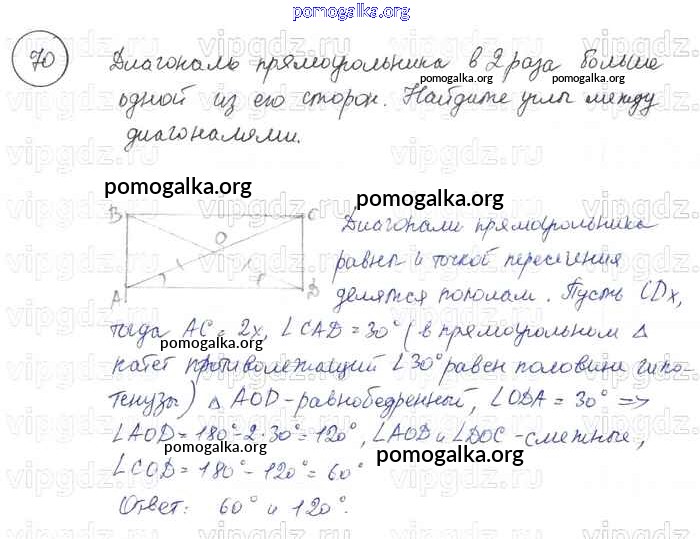 pomogalka.org
70
Диагональ прямоугольника в 2 раза больше
pomogalka.org pomogalka.org
одной из его сторон. Найдите углы между
диагоналями.
vipgdz.ru vipgdz.ru vipgdz.ru vipgdz.ru
pomogalka.org pomogalka.org
B C
O
A D
Диагонали прямоугольника
равны и точкой пересечения
делятся пополам. Пусть CDx,
pomogalka.org
тогда AC = 2x, ∠CAD = 30° (в прямоугольном △
pomogalka.org
катет противолежащий ∠30° равен половине гипо-
тенузы) △ AOD - равнобедренный, ∠ODA = 30° =>
∠AOD = 180° - 2·30° = 120°, ∠AOD и ∠DOC - смежные,
pomogalka.org
∠COD = 180° - 120° = 60°
pomogalka.org
Ответ: 60° и 120°.